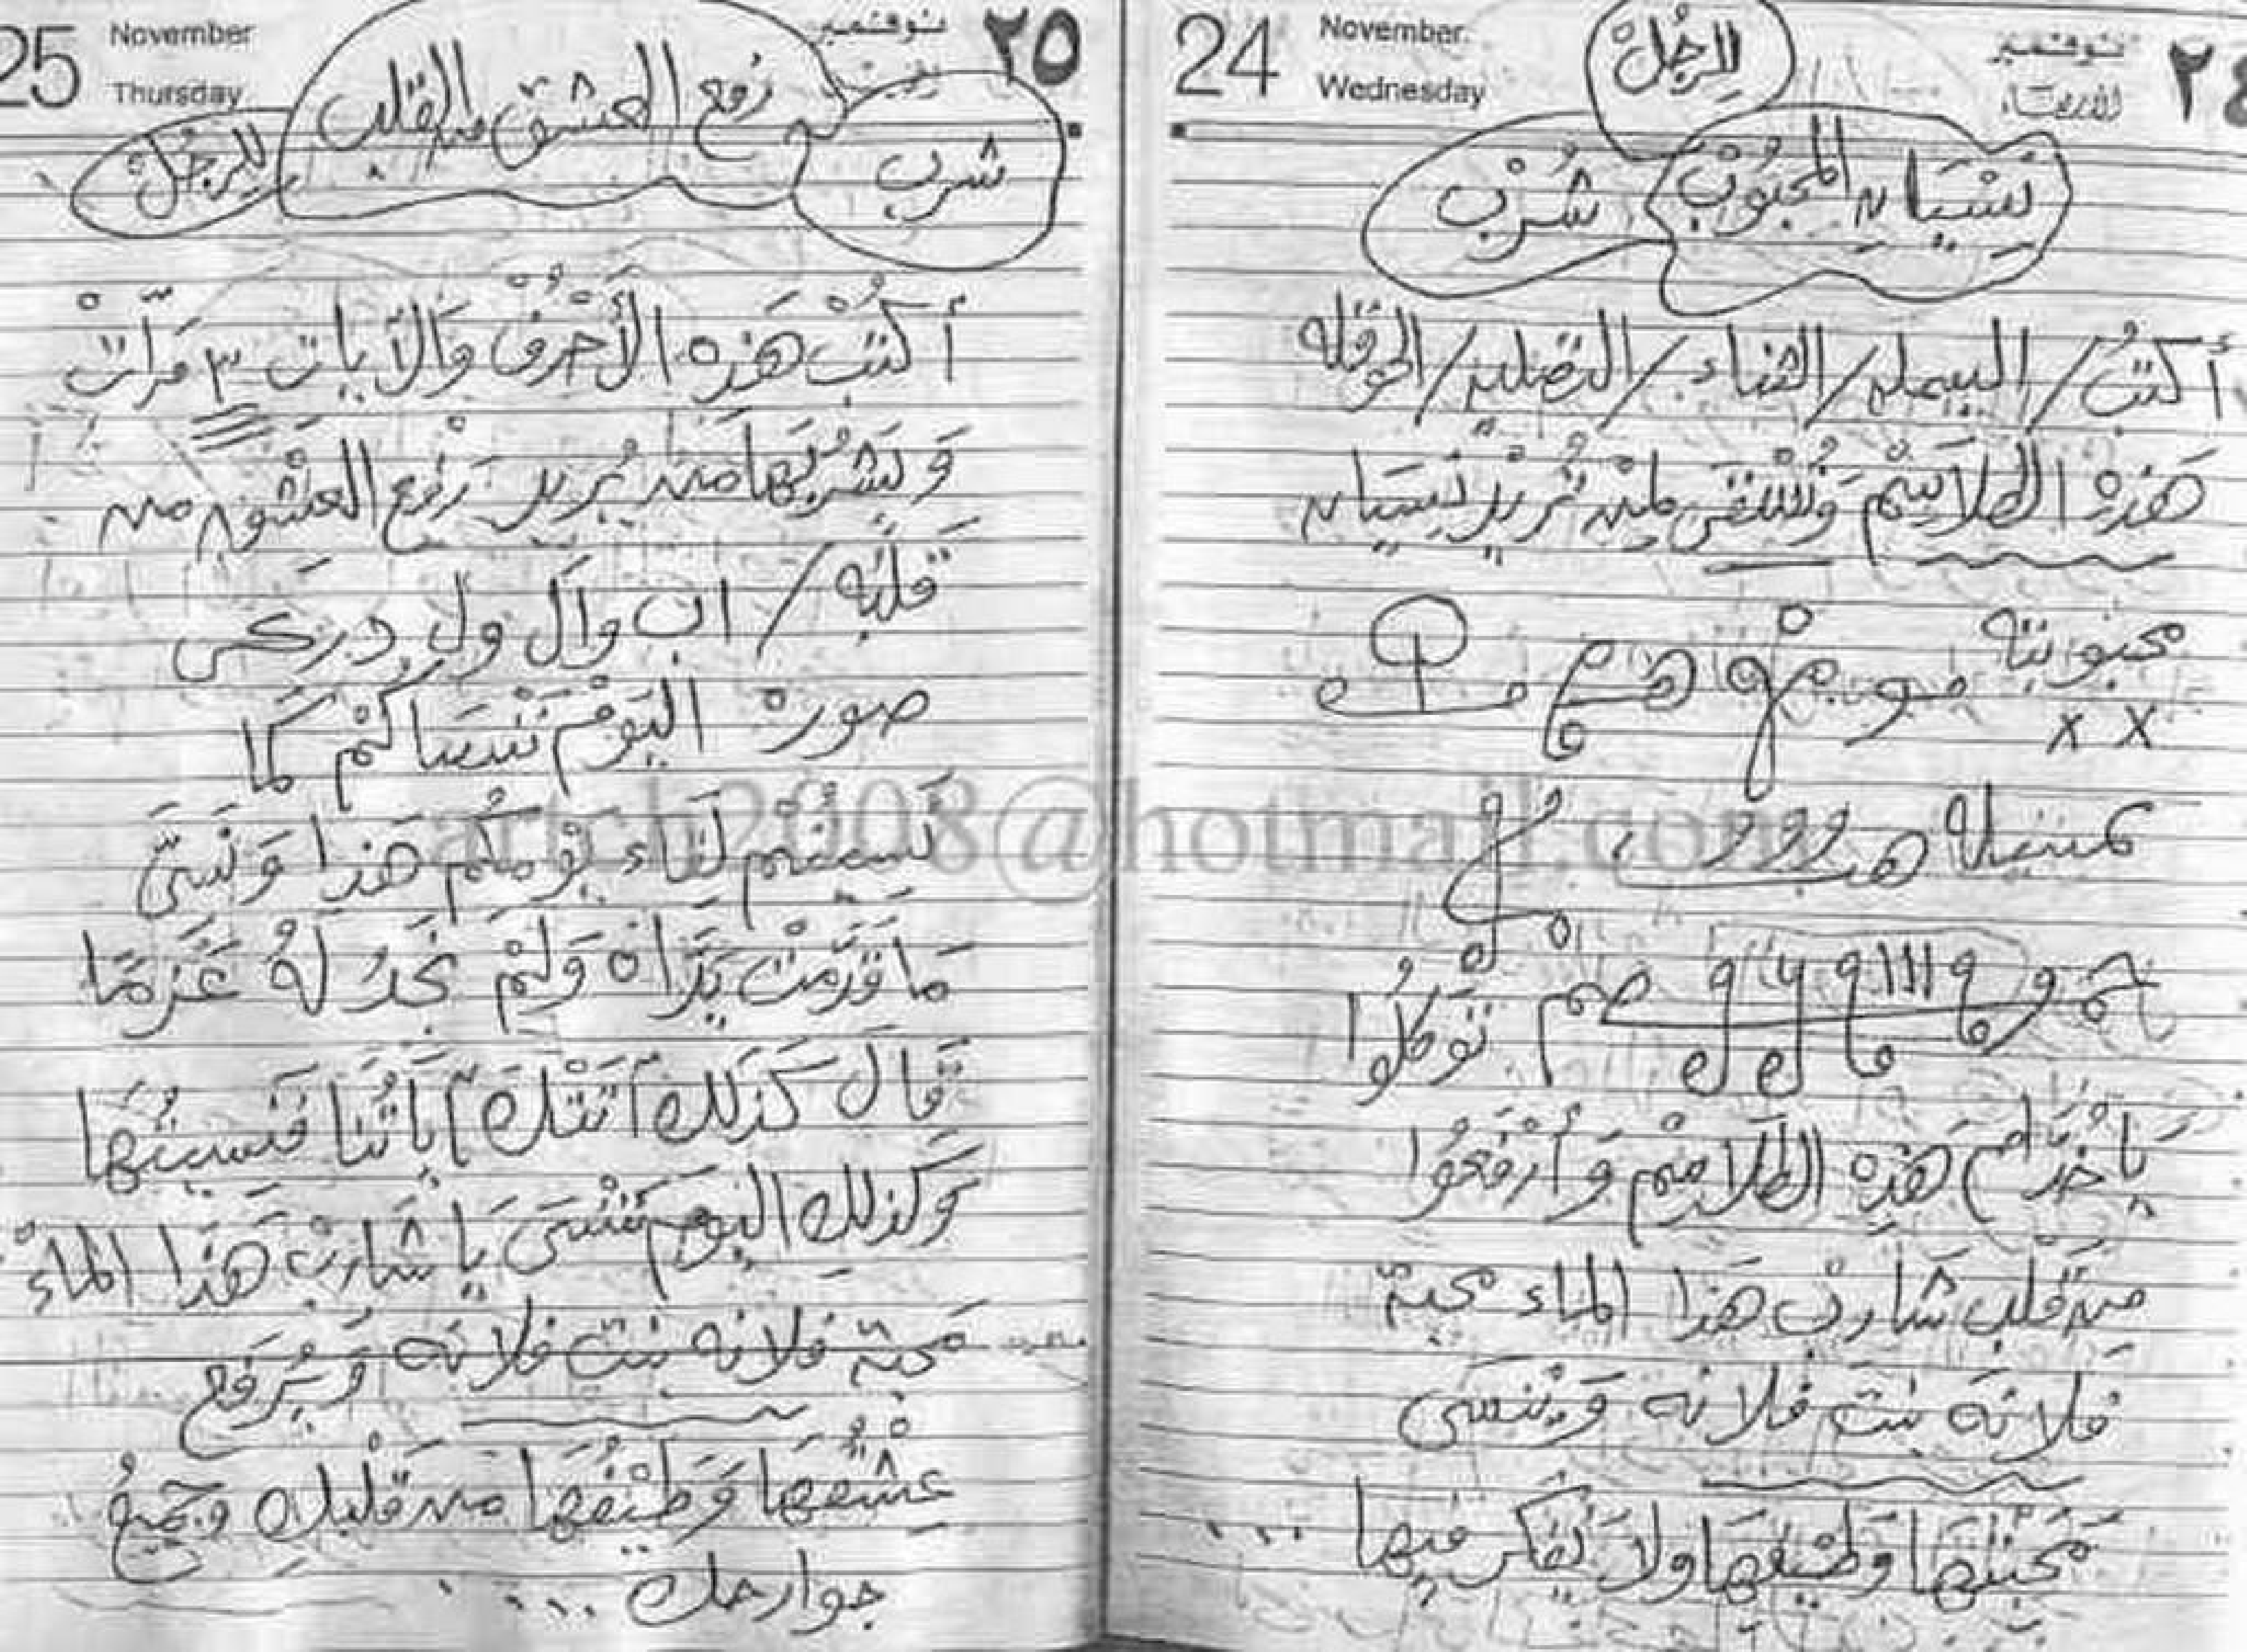 24
November
Wednesday
نوفمبر
الأربعاء
٢٤
للرجُلْ
نِسْيَانِ المحبُوبْ
شُرْبْ
أكتبُ / البسمله / الثناء / التصليه / الحوقله
هَذِهْ الطلاسِمْ وتُسْقَى لِمَنْ تُرِيدْ نِسْيَان
محبوبته
توَكلُوا
يَاخُدَّام هَذِهِ الطَلاسِمْ وَأرْفَعُوا
مِنْ قَلبِ شَاربْ هَذا الماء محبة
فلانَه بنت فلانه وَيَنْسَى
مَحَبْتَهَا وَطَيْفَهَا ولا يُفَكر فيها ....
25
November
Thursday
نوفمبر
٢٥
شرب
رفع العشق من القلب
للرجُلْ
أكتُبْ هَذِه الأَحْرُفْ وَالآيات ٣ مَرَّاتْ
وَيَشْرَبُهَا مَنْ يُريد رَفْع العِشْق من
قلبَه / اب وال ول دركس
صوره اليَوْمَ نَنْسَاكُمْ كَمَا
نَسِيتُم لقَاء يَوْمِكُم هَذا وَنَسِيَ
مَا قَدَّمَتْ يَدَاهُ وَلَمْ نجدْ لَهُ عَزمَا
قَال كَذلك أتَتْكَ آيَاتُنَا فَنَسِيتَهَا
وَكَذلك اليَوم تُنْسَى يَا شَاربْ هَذا الماءْ
مَحَبة فلانه بنت فلانَه وَيُرْفَع
عِشْقُهَا وَطَيْفُهَا من قَلْبِك وجميعُ
جوارحك ....
artch2008@hotmail.com